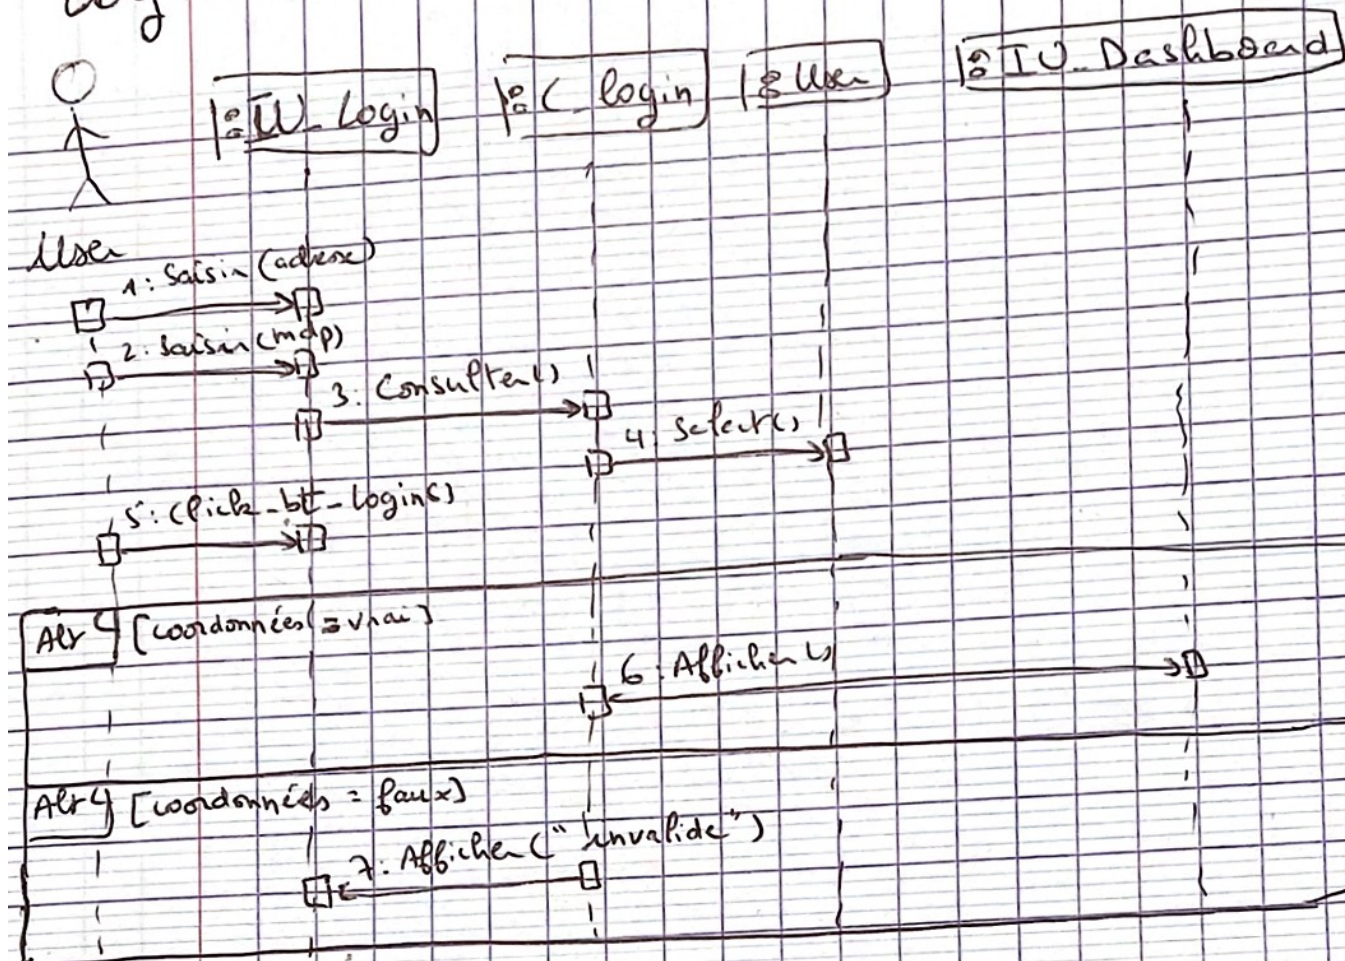 :IU_Login
:C_login
:User
:IU_Dashboard
User
1: Saisir(adresse)
2: Saisir(mdp)
3: Consulter()
4: Select()
5: Click_bt_login()
Alt [coordonnées = vrai]
6: Afficher()
Alt [coordonnées = faux]
7: Afficher("invalide")